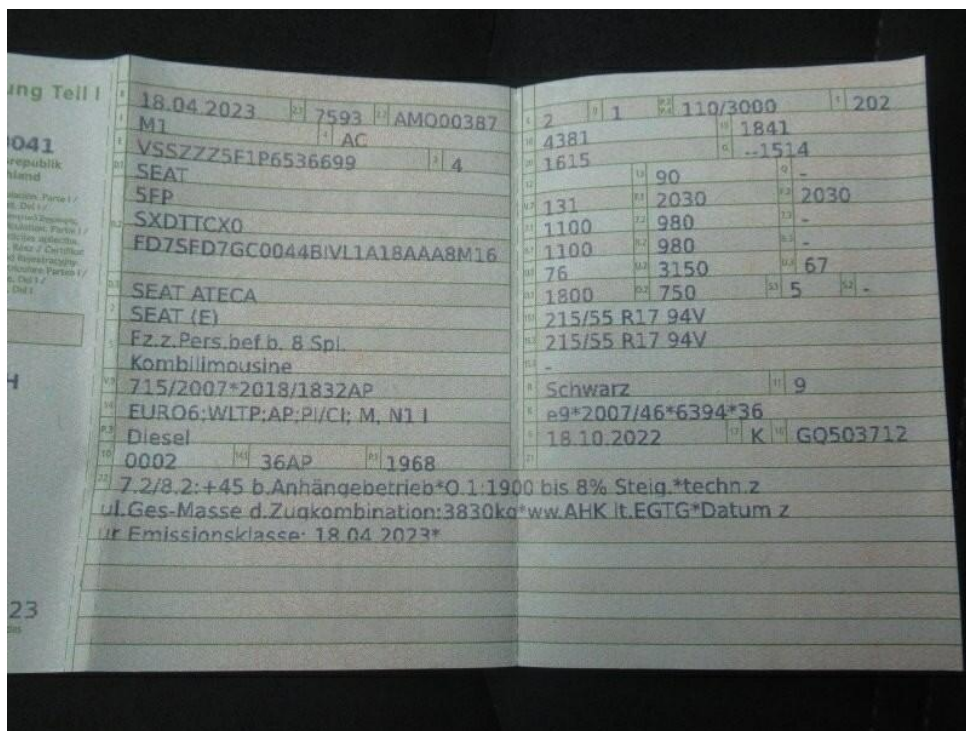 ung Teil I
0041
republik
hland
23
18.04.2023 7593 AMQ00387
M1 AC
VSSZZZ5F1P6536699 4
SEAT
5FP
SXDTTCX0
FD7SFD7GC0044BIVL1A18AAA8M16
SEAT ATECA
SEAT (E)
Fz.z.Pers.bef.b. 8 Spl.
Kombilimousine
715/2007*2018/1832AP
EURO6;WLTP;AP;PI/CI; M, N1 I
Diesel
0002 36AP 1968
2 1 110/3000 202
4381 1841
1615 --1514
90 -
131 2030 2030
1100 980 -
1100 980 -
76 3150 67
1800 750 5 -
215/55 R17 94V
215/55 R17 94V
-
Schwarz 9
e9*2007/46*6394*36
18.10.2022 K GQ503712
7.2/8.2:+45 b.Anhängebetrieb*O.1:1900 bis 8% Steig.*techn.z
ul.Ges-Masse d.Zugkombination:3830kg*ww.AHK lt.EGTG*Datum z
ur Emissionsklasse: 18.04.2023*